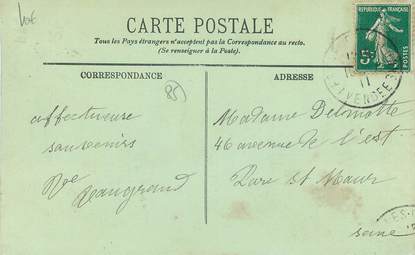 CARTE POSTALE
Tous les Pays étrangers n'acceptent pas la Correspondance au recto.
(Se renseigner à la Poste).
CORRESPONDANCE
ADRESSE
REPUBLIQUE FRANÇAISE
5
POSTES
11
VENDEE
85
affectueux
souvenirs
Madame Delmotte
46 avenue de l'est
Parc St Maur
Seine